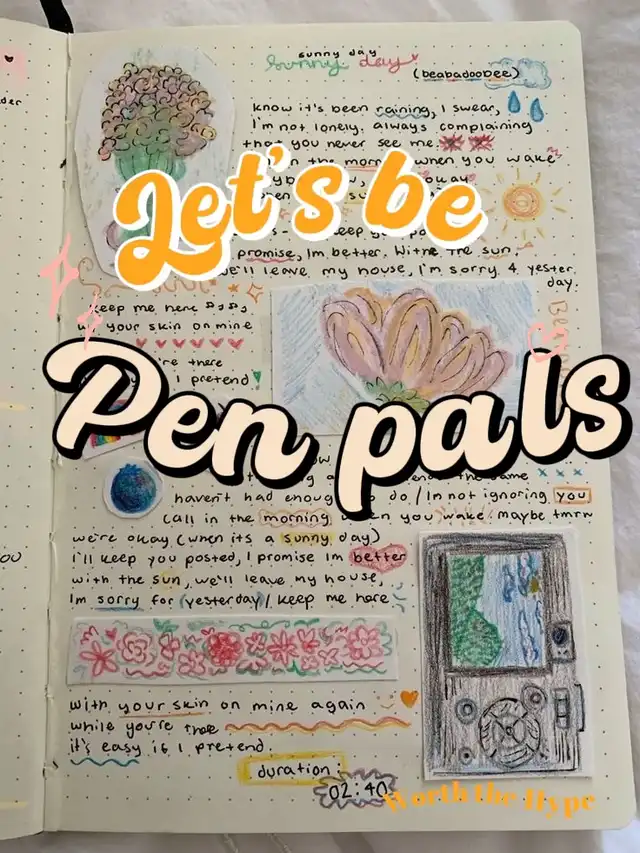 sunny day
sunny day
(beabadoobee)
know it's been raining, I swear,
I'm not lonely. always complaining
that you never see me
in the morn when you wake
okay
Let's be
keep you po
promise, Im better. With the sun.
we'll leave my house, I'm sorry 4 yester.
day.
keep me here
your skin on mine
're there
I pretend
Pen pals
haven't had enoug do / Im not ignoring you
call in the morning, en you wake. maybe tmrn
we're okay (when its a sunny day)
I'll keep you posted, I promise Im better
with the sun, we'll leave my house,
Im sorry for (yesterday) / keep me here
with your skin on mine again
while you're thee
it's easy if I pretend.
duration
02:40
Worth the Hype
der
you